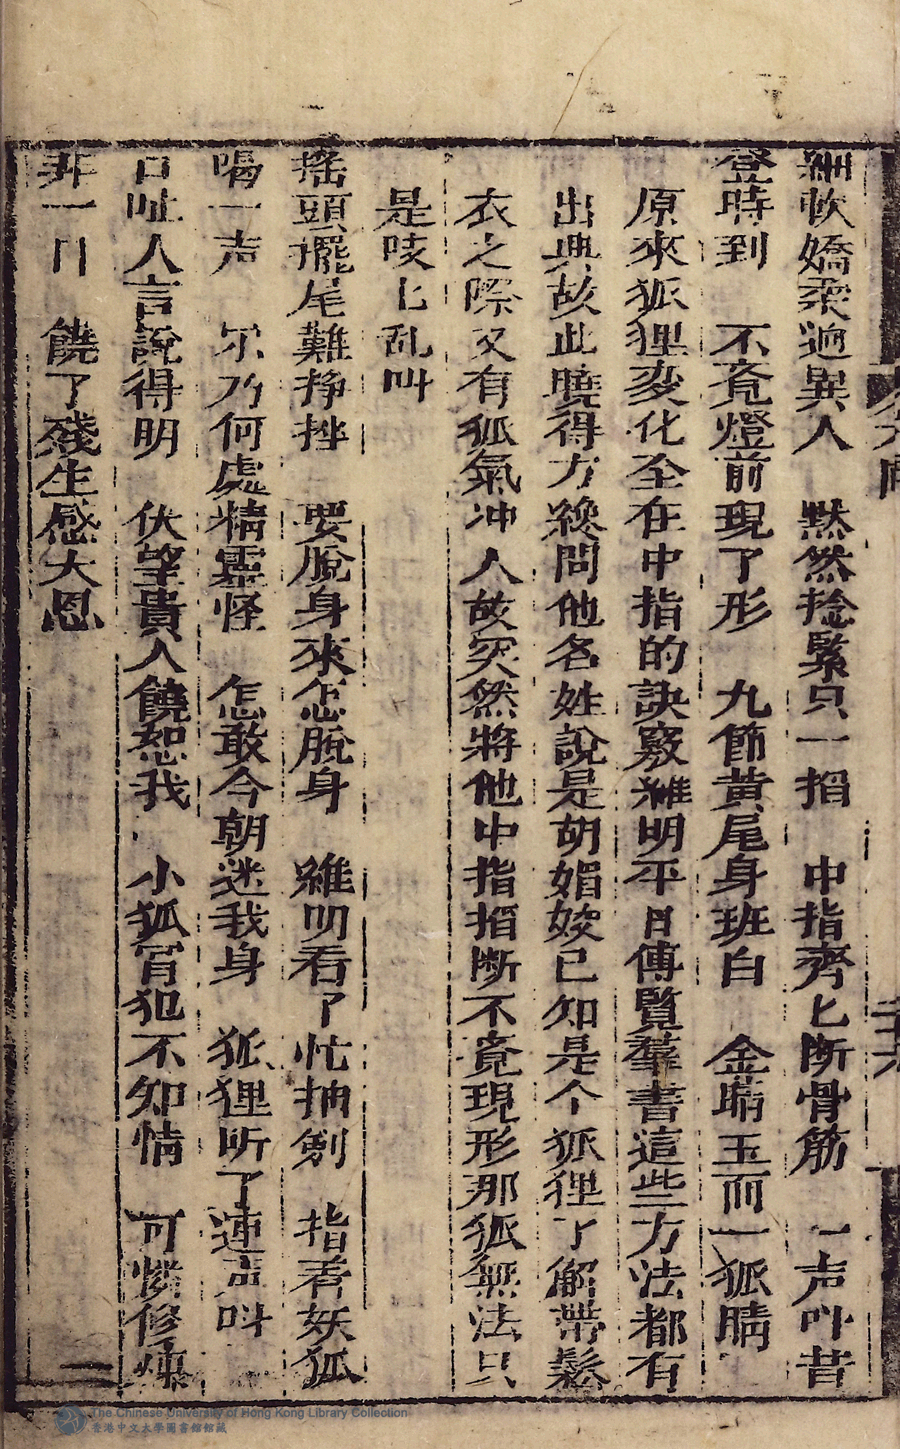 細軟嬌柔迥異人　默然捻緊只一掐　中指齊匕断骨筋　一声叫昔
登時到　不覓燈前現了形　九節黃尾身班白　金睛玉面一狐睛
原來狐狸变化全在中指的訣竅雖明平日傳覽羣書這些方法都有
出典故此曉得方纔問他名姓說是胡媚姣已知是个狐狸了解帶鬆
衣之際又有狐氣冲人故突然將他中指掐断不覓現形那狐無法只
是吱匕乱叫
搖頭擺尾難掙挫　要脫身來怎脫身　雖明看了忙抽劍　指着妖狐
喝一声　尔乃何處精靈怪　怎敢今朝迷我身　狐狸听了連声叫
口吐人言說得明　伏望貴人饒恕我　小狐冐犯不知情　可憐修煉
非一日　饒了殘生感大恩
二十六
The Chinese University of Hong Kong Library Collection
香港中文大學圖書館館藏